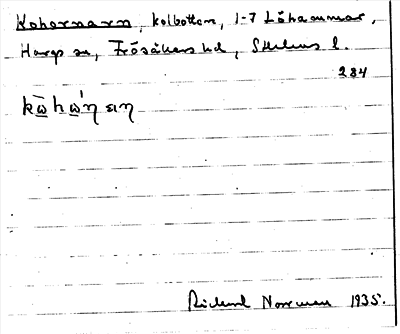 Kohornarn, kolbotten, 1-7 Låhammar,
Harg sn, Frösåkers hd, Sthlms l.
284
Rickard Norrman 1935.